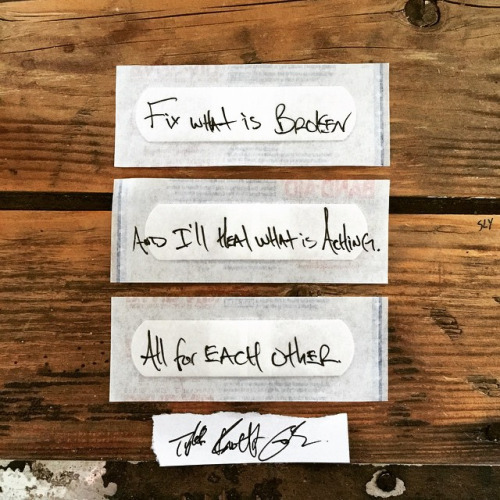 Fix what is Broken
And I'll Heal what is Aching.
All for Each other
SLY
Tyler Knott